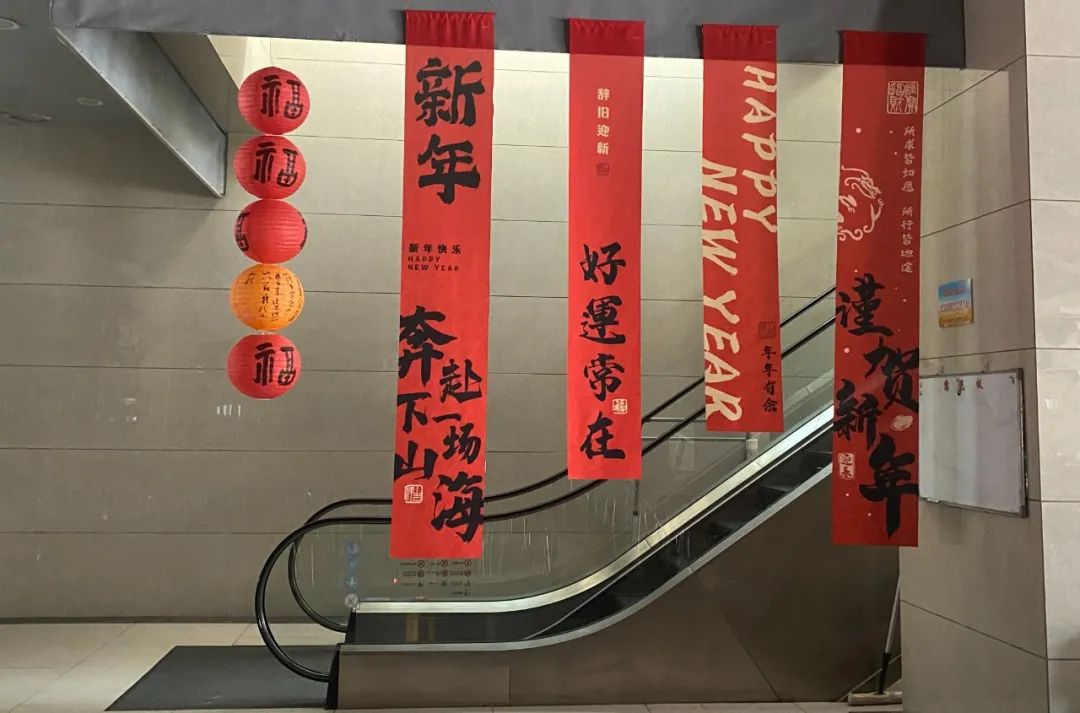 福
福
福
福
新年
新年快乐
HAPPY
NEW YEAR
奔下山
赴一场海
辞旧迎新
好運常在
福
HAPPY
NEW YEAR
年年有余
所求皆如愿
所行皆坦途
謹贺新年
迎春